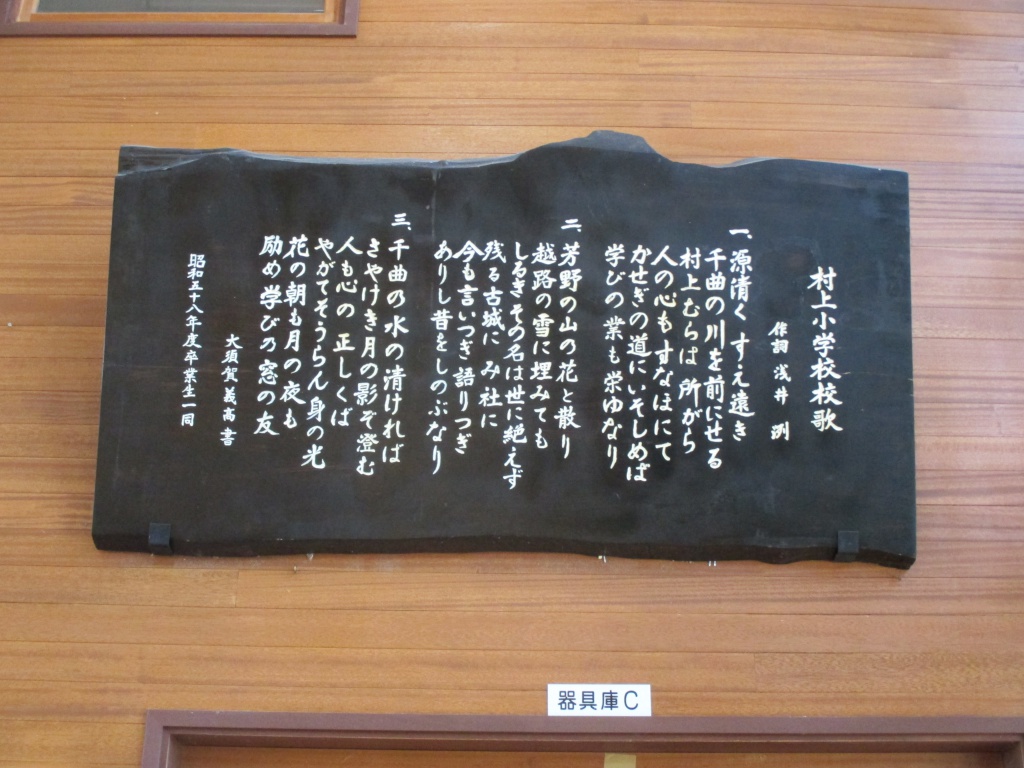 村上小学校校歌
作詞 浅井 洌
一、源清く すゑ遠き
千曲の川を前にせる
村上むらは 所がら
人の心も すなほにて
かせぎの道にいそしめば
学びの業も栄ゆなり
二、芳野の山の花と散り
越路の雪に埋みても
しるきその名は世に絶えず
残る古城に み社に
今も言いつぎ語りつぎ
ありし昔をしのぶなり
三、千曲の水の清ければ
さやけき月の影ぞ澄む
人も心の 正しくば
やがてそうらん身の光
花の朝も月の夜も
励め学びの窓の友
大須賀義高 書
昭和五十八年度卒業生一同
器具庫C